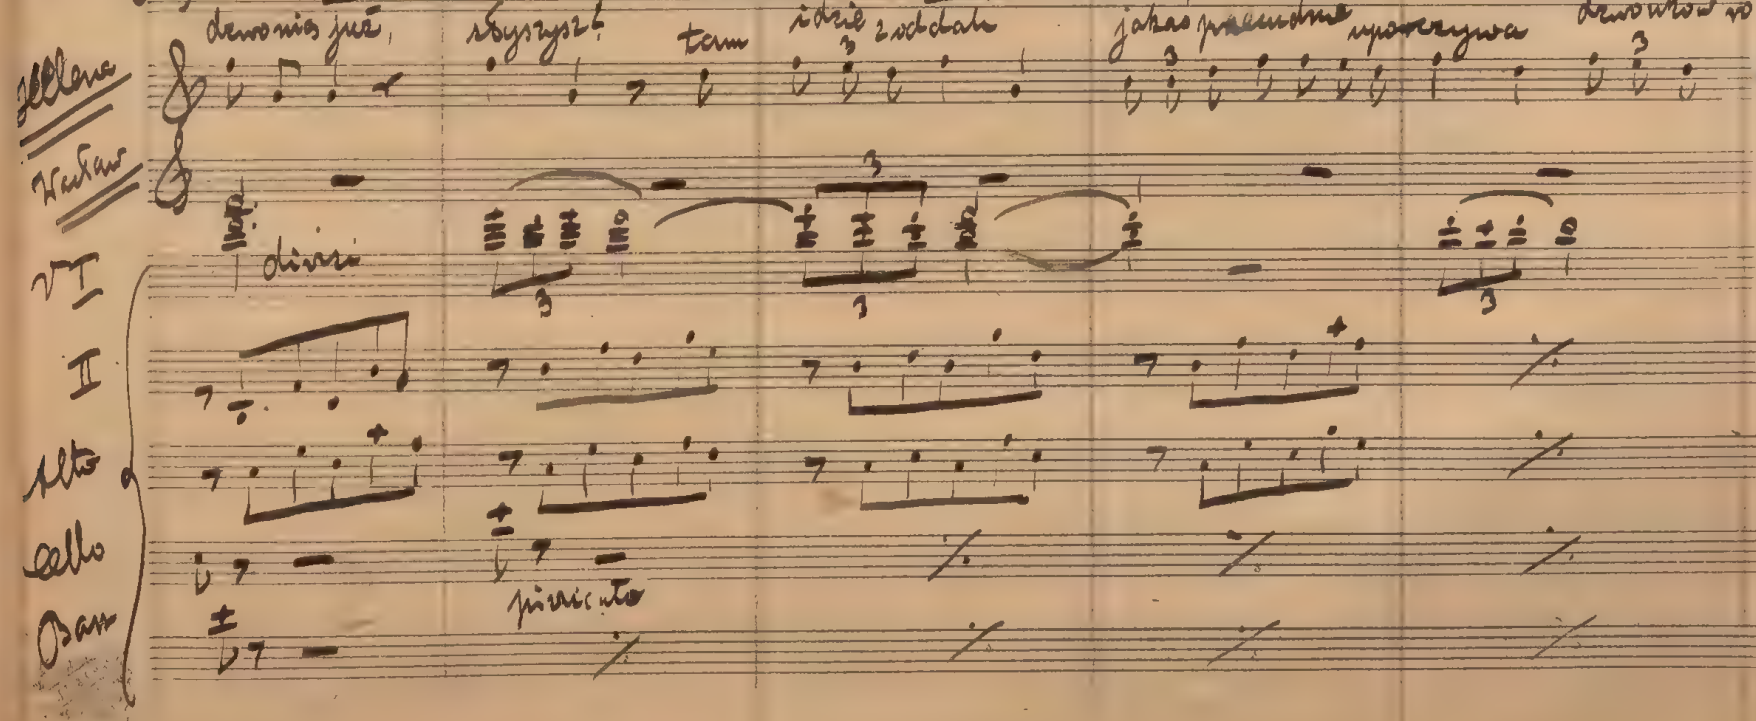 dzwonią już, słyszysz? tam idzie z oddali jakaś przecudna uporczywa
Helena 3 3 3
Wacław
3
VI divisi
3 3 3
II
Alto
Cello
pizzicato
Bass